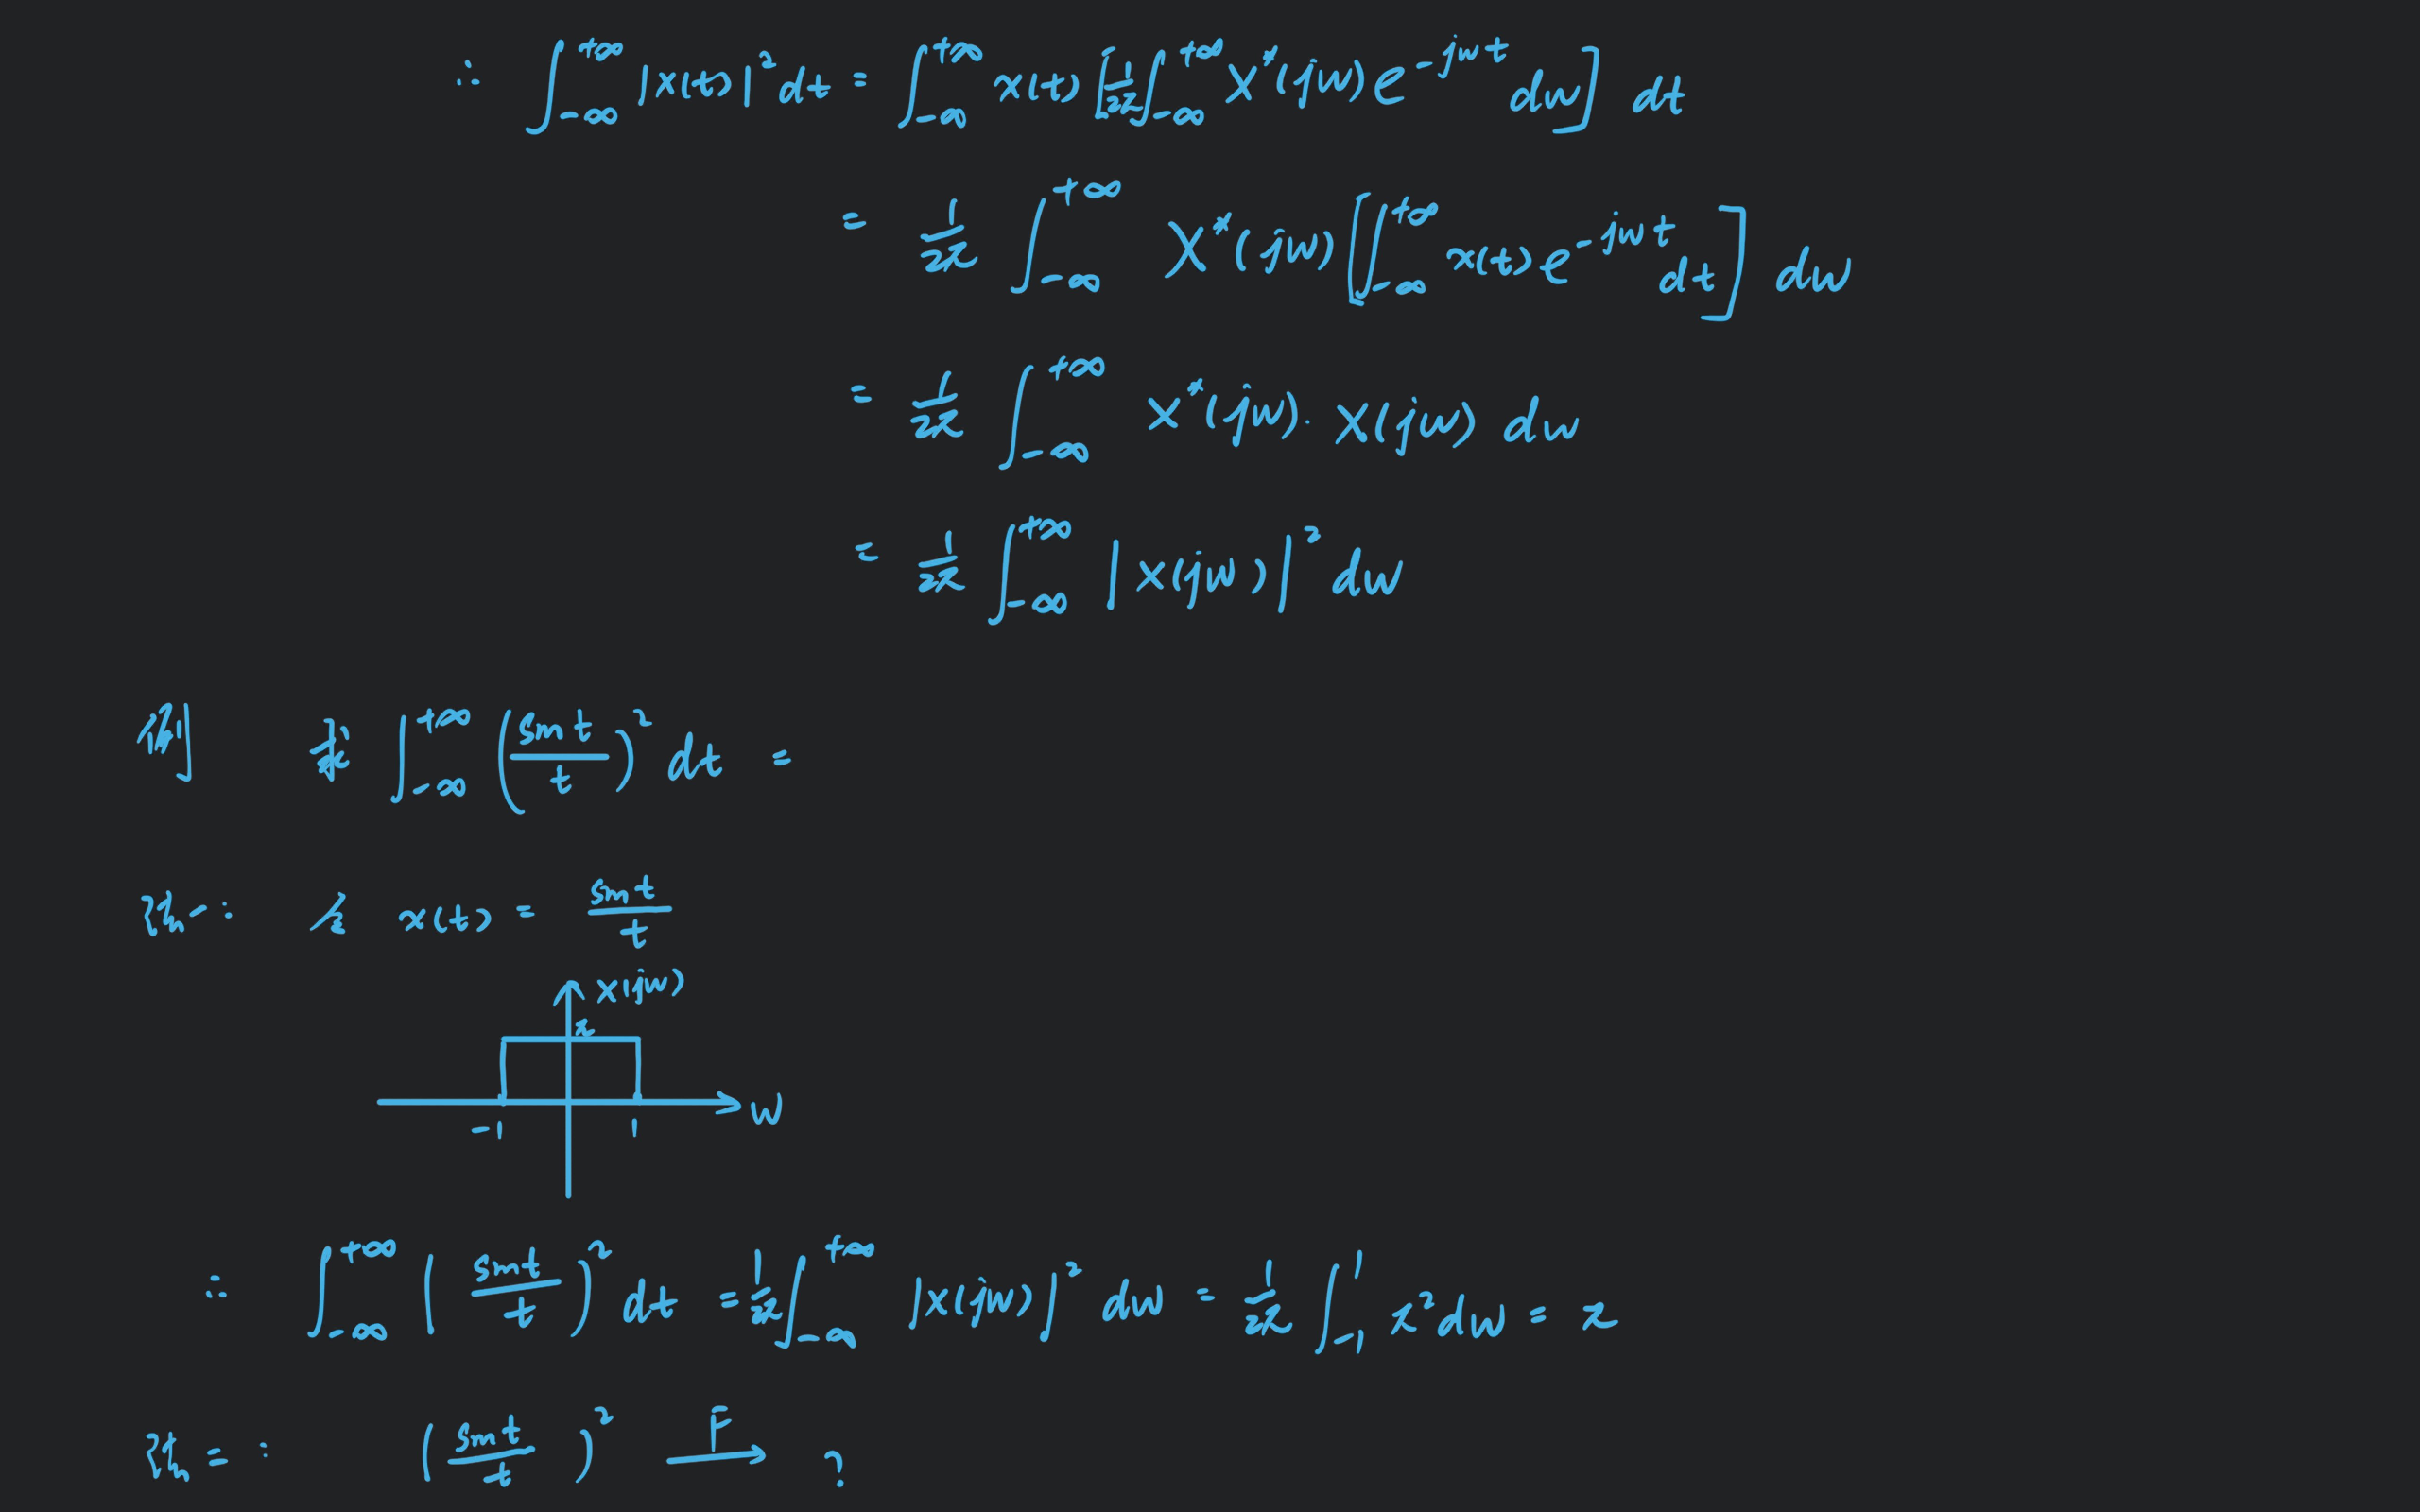 ∴ ∫_{-∞}^{+∞} |x(t)|² dt = ∫_{-∞}^{+∞} x(t) [1/2π ∫_{-∞}^{+∞} X*(jw) e^{-jwt} dw] dt
= 1/2π ∫_{-∞}^{+∞} X*(jw) [∫_{-∞}^{+∞} x(t) e^{-jwt} dt] dw
= 1/2π ∫_{-∞}^{+∞} X*(jw) · X(jw) dw
= 1/2π ∫_{-∞}^{+∞} |X(jw)|² dw
例 求 ∫_{-∞}^{+∞} (sin t / t)² dt =
法一: 令 x(t) = sin t / t
X(jw)
π
-1 1 w
∴ ∫_{-∞}^{+∞} (sin t / t)² dt = 1/2π ∫_{-∞}^{+∞} |X(jw)|² dw = 1/2π ∫_{-1}^{1} π² dw = π
法二: (sin t / t)² —F→ ?